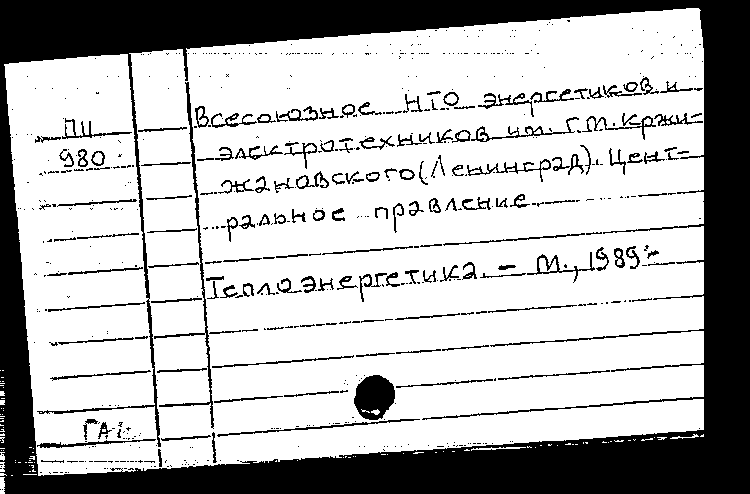 ПЦ
980
Всесоюзное НТО энергетиков и
электротехников им. Г.М. Кржи-
жановского (Ленинград). Цент-
ральное правление
Теплоэнергетика. – М., 1989-